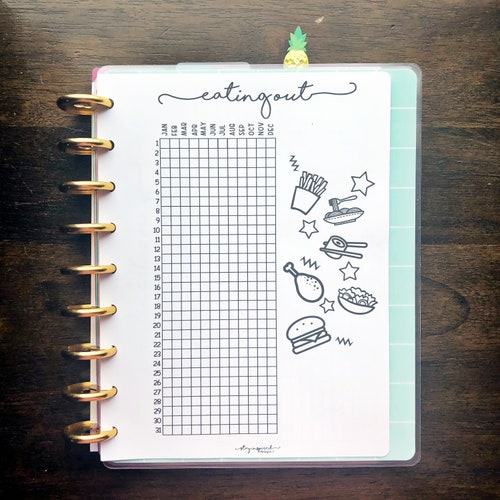 eating out
JAN FEB MAR APR MAY JUN JUL AUG SEP OCT NOV DEC
1
2
3
4
5
6
7
8
9
10
11
12
13
14
15
16
17
18
19
20
21
22
23
24
25
26
27
28
29
30
31
stay inspired
designs